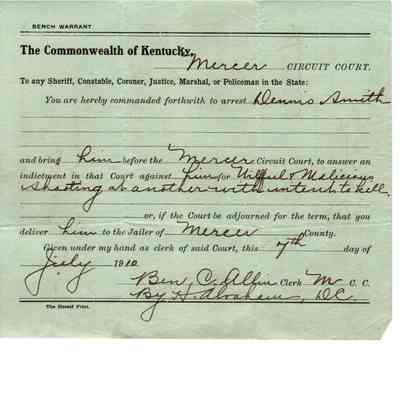 BENCH WARRANT
The Commonwealth of Kentucky,
Mercer CIRCUIT COURT.
To any Sheriff, Constable, Coroner, Justice, Marshal, or Policeman in the State:
You are hereby commanded forthwith to arrest Dennis Smith
and bring him before the Mercer Circuit Court, to answer an
indictment in that Court against him for Wilful & Malicious
shooting at another with intent to kill,
or, if the Court be adjourned for the term, that you
deliver him to the Jailer of Mercer County.
Given under my hand as clerk of said Court, this 7th day of
July 1910
Ben C. Allin Clerk M C. C.
By H. Abraham, D.C.
The Herald Print.